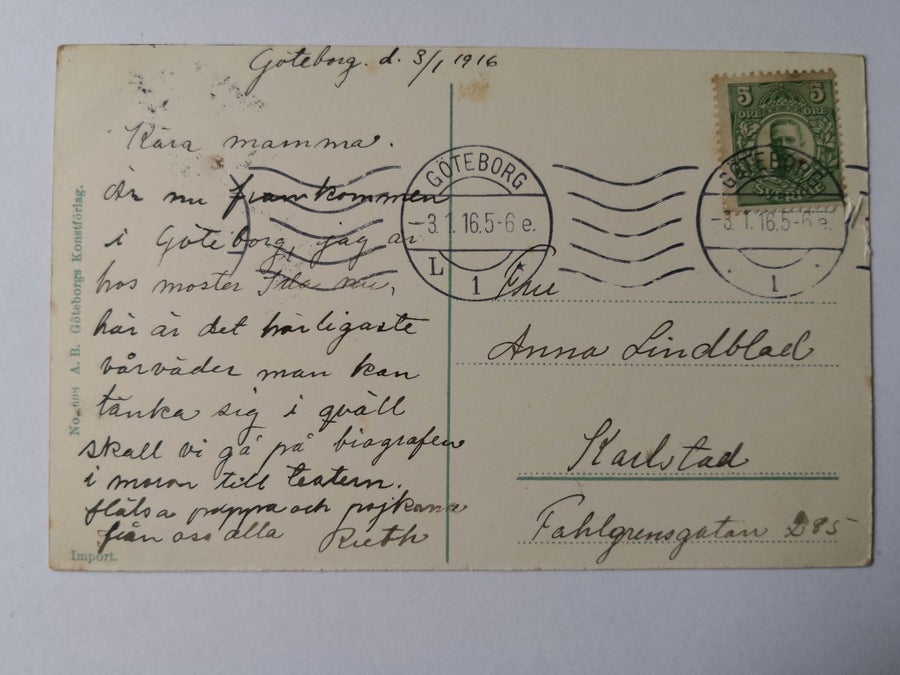 Göteborg. d. 3/1 1916
Kära mamma.
Är nu framkommen
i Göteborg, jag är
hos moster Ida nu,
här är det härligaste
vårväder man kan
tänka sig i qväll
skall vi gå på biografen
i moron till teatern.
Hälsa pappa och pojkarna
från oss alla
Ruth
No. 608 A. B. Göteborgs Konstförlag.
Import.
5 5
ÖRE ÖRE
SVERIGE
GÖTEBORG
-3.1.16.5-6 e.
L 1 *
GÖTEBORG
-3.1.16.5-6 e.
1
Fru
Anna Lindblad
Karlstad
Fahlgrensgatan 285